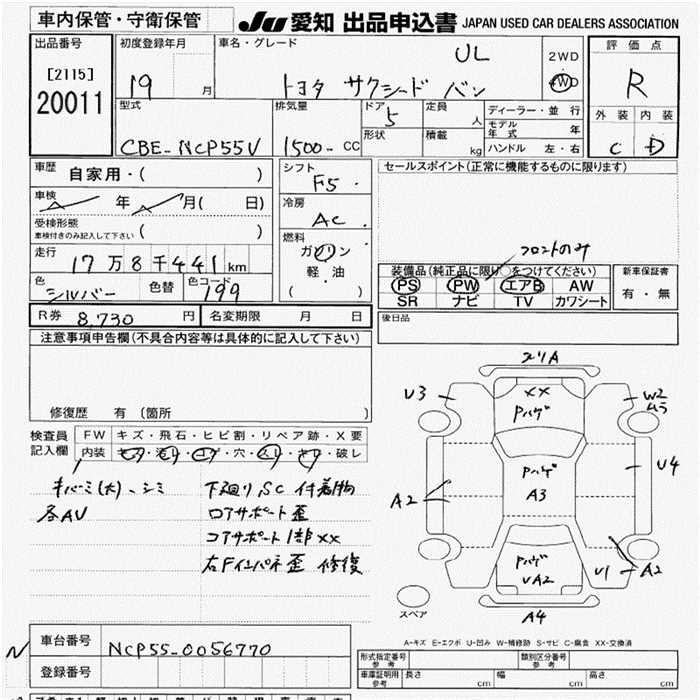 車内保管・守衛保管
JU 愛知 出品申込書 JAPAN USED CAR DEALERS ASSOCIATION
出品番号
[2115]
20011
初度登録年月
19 月
車名・グレード
UL
トヨタ サクシード バン
2WD
4WD
評価点
R
外装 内装
C D
型式
CBE-NCP55V
排気量
1500- CC
ドア
5
形状
定員
人
積載
kg
ディーラー・並行
モデル年式 年
ハンドル 左・右
車歴
自家用・( )
車検
年 月( 日)
受検形態
車検付きのみ記入して下さい ( )
走行
17万8千441km
色
シルバー
色替
色コードNo.
199
シフト
F5.
冷房
AC.
燃料
ガソリン
軽・油
( )
セールスポイント(正常に機能するものに限ります)
フロントのみ
装備品(純正品に限り○をつけてください)
PS PW エアB AW
SR ナビ TV カワシート
新車保証書
有・無
R券 8,730 円
名変期限 月 日
後日品
注意事項申告欄(不具合内容等は具体的に記入して下さい)
修復歴 有(箇所 )
検査員
記入欄
FW キズ・飛石・ヒビ割・リペア跡・X要
内装 キズ・汚レ・コゲ・穴・スレ・キレ・破レ
キバーミ(大)-シミ
各AU
下廻りSC 付着物
ロアサポート歪
コアサポート1部XX
右Fインパネ歪 修復
スリA
U3
XX
Pハゲ
W2
ムラ
Pハゲ
A3
A2
U4
Pハゲ
UA2
U1
A2
A4
スペア
A-キズ E-エクボ U-凹み W-補修跡 S-サビ C-腐食 XX-交換済
車台番号 NCP55-0056770
登録番号
形式指定番号
参考
類別区分番号
参考
車庫証明用
参考
長さ cm
幅 cm
高さ cm